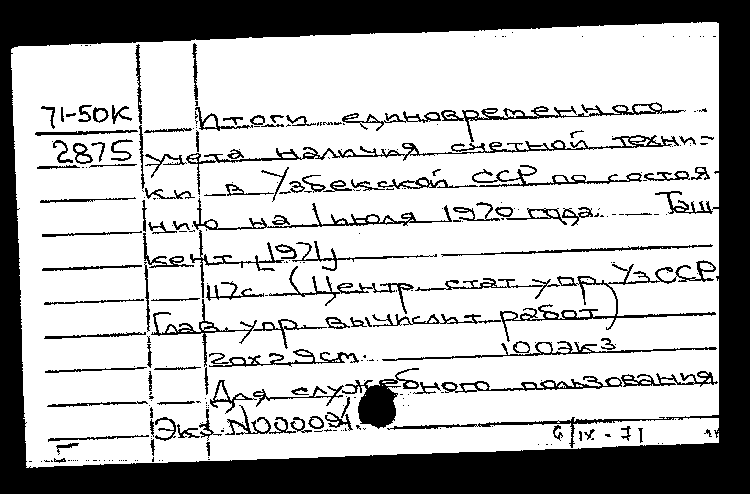 71-50К Итоги единовременного
2875 учета наличия счетной техни-
ки в Узбекской ССР по состоя-
нию на 1 июля 1970 года. Таш-
кент, [1971]
117с (Центр. стат упр. УзССР.
Глав. упр. вычислит работ)
20х2,9см. 100экз
Для служебного пользования
Экз. №000091.
6/IX-71